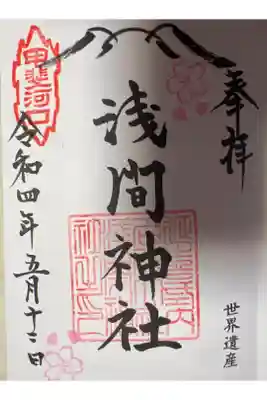 奉拝
世界遺産
浅間神社
甲斐河口
令和四年五月十二日